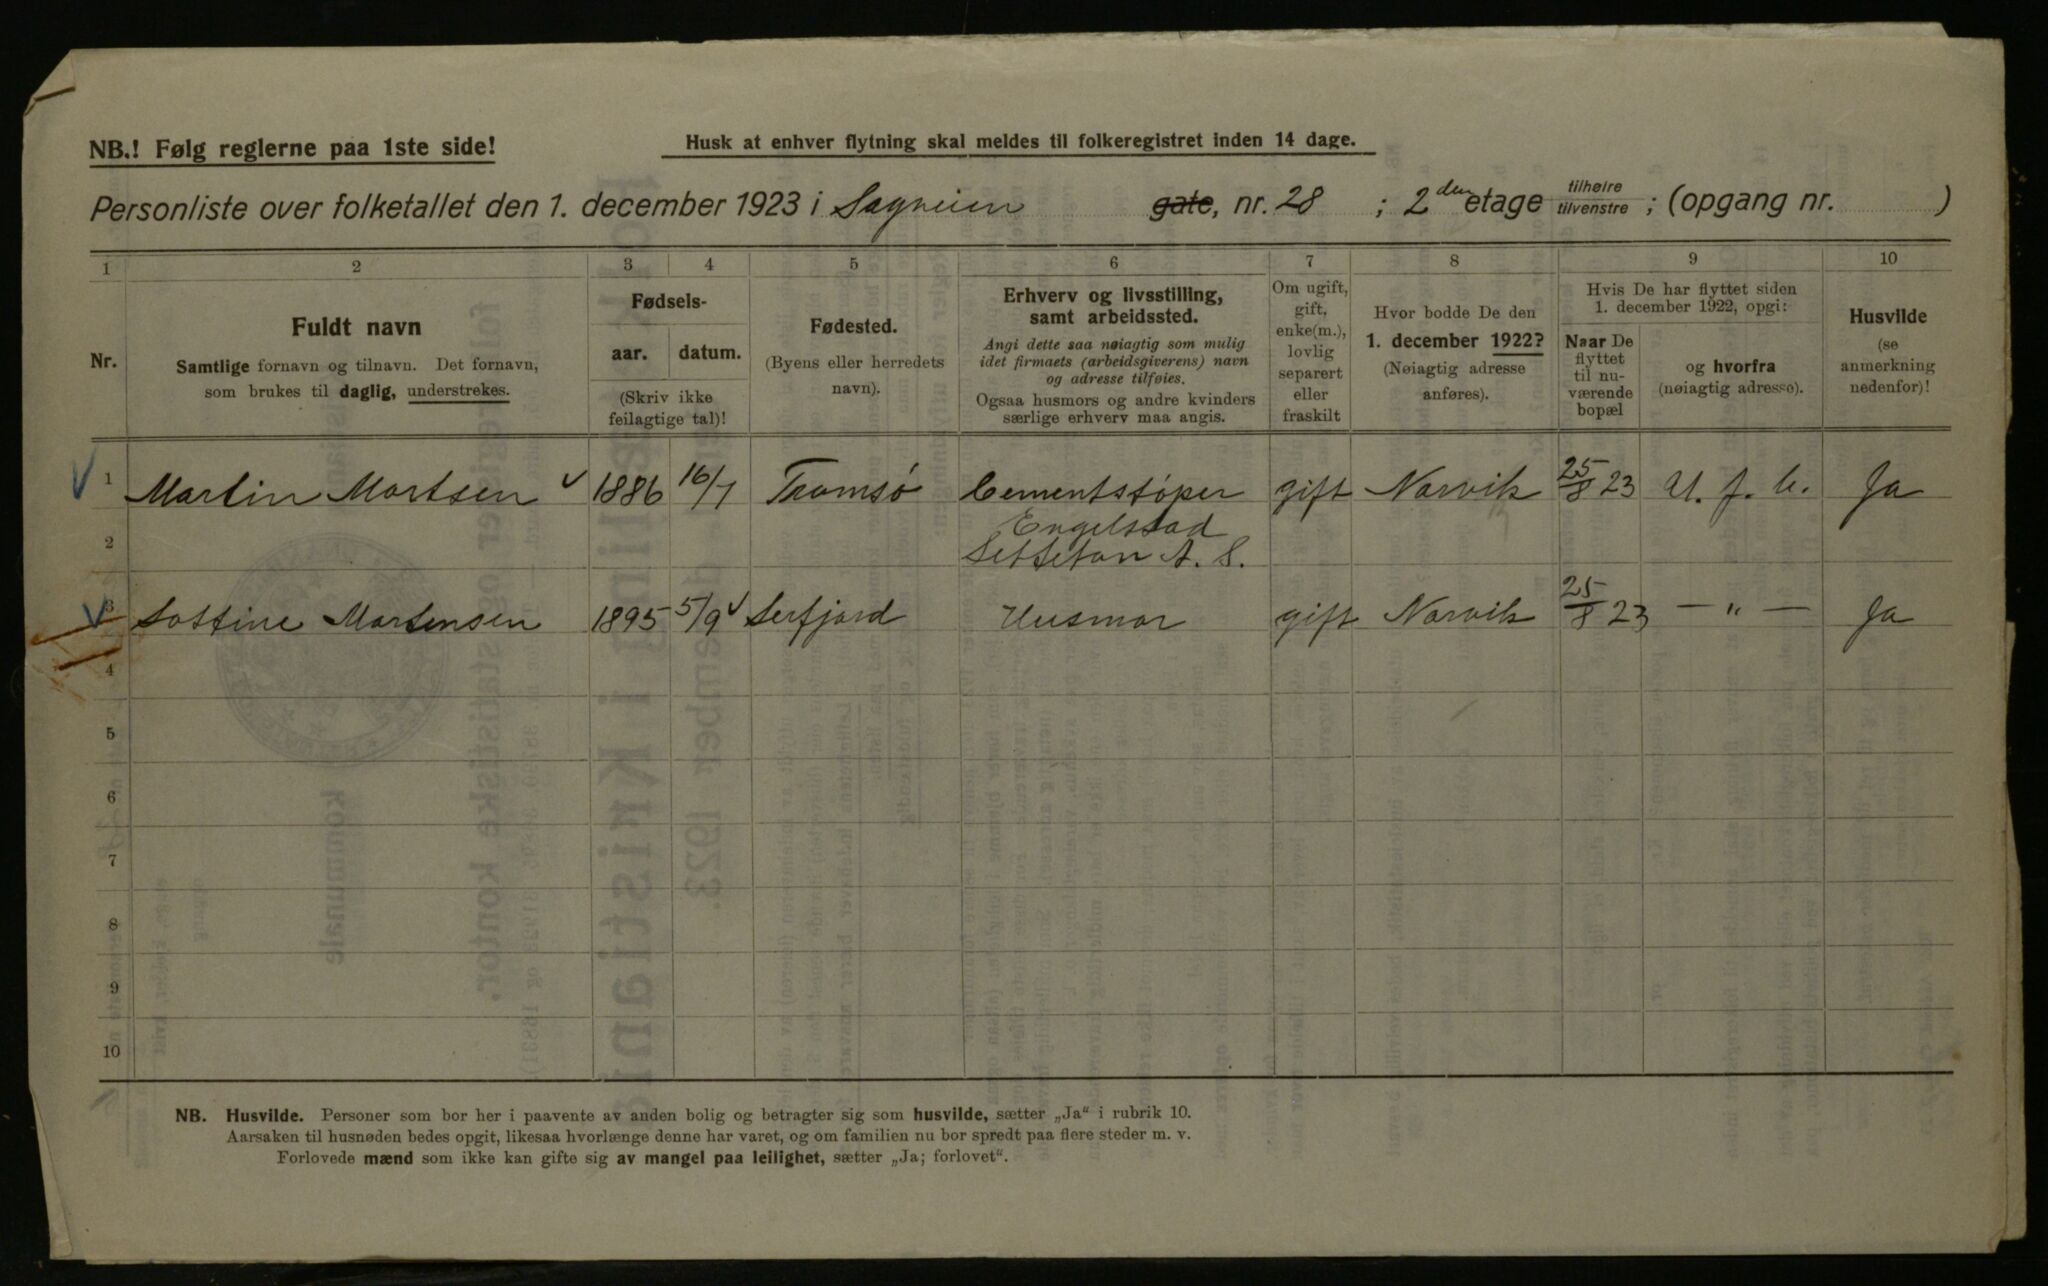 NB.! Følg reglerne paa 1ste side!
Husk at enhver flytning skal meldes til folkeregistret inden 14 dage.
Personliste over folketallet den 1. december 1923 i Sagveien gate, nr. 28 ; 2den etage tilhøire tilvenstre ; (opgang nr. )
1 2 3 4 5 6 7 8 9 10
Nr.
Fuldt navn
Samtlige fornavn og tilnavn. Det fornavn,
som brukes til daglig, understrekes.
Fødsels-
aar. datum.
(Skriv ikke
feilagtige tal)!
Fødested.
(Byens eller herredets
navn).
Erhverv og livsstilling,
samt arbeidssted.
Angi dette saa nøiagtig som mulig
idet firmaets (arbeidsgiverens) navn
og adresse tilføies.
Ogsaa husmors og andre kvinders
særlige erhverv maa angis.
Om ugift,
gift,
enke(m.),
lovlig
separert
eller
fraskilt
Hvor bodde De den
1. december 1922?
(Nøiagtig adresse
anføres).
Hvis De har flyttet siden
1. december 1922, opgi:
Naar De
flyttet
til nu-
værende
bopæl
og hvorfra
(nøiagtig adresse).
Husvilde
(se
anmerkning
nedenfor)!
1 Martin Mortsen 1886 16/7 Tromsø Cementstøper gift Narvik 25/8 23 U. f. b. Ja
2 Engelstad
A. S.
3 Mortensen 1895 5/9 Serfjord Husmor gift Narvik 25/8 23 — „ — Ja
4
5
6
7
8
9
10
NB. Husvilde. Personer som bor her i paavente av anden bolig og betragter sig som husvilde, sætter „Ja“ i rubrik 10.
Aarsaken til husnøden bedes opgit, likesaa hvorlænge denne har varet, og om familien nu bor spredt paa flere steder m. v.
Forlovede mænd som ikke kan gifte sig av mangel paa leilighet, sætter „Ja; forlovet“.